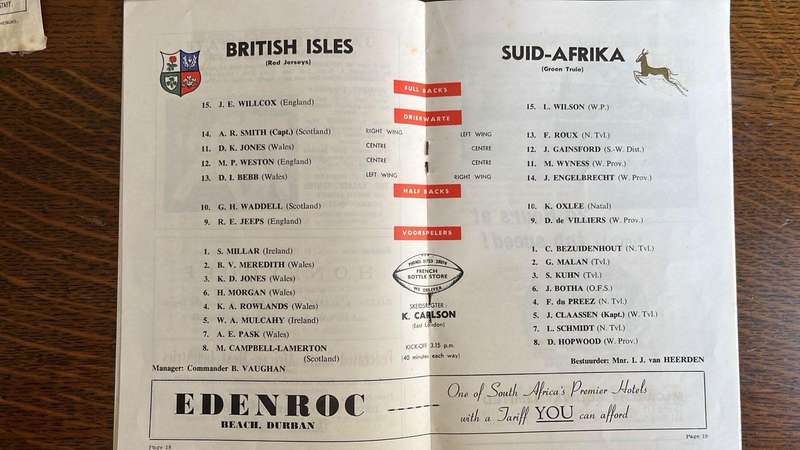 STAFF
BRITISH ISLES
(Red Jerseys)
SUID-AFRIKA
(Groen Truie)
FULL BACKS
15. J. E. WILLCOX (England)
15. L. WILSON (W.P.)
DRIEKWARTE
14. A. R. SMITH (Capt.) (Scotland) RIGHT WING
LEFT WING 13. F. ROUX (N. Tvl.)
11. D. K. JONES (Wales) CENTRE
CENTRE 12. J. GAINSFORD (S.-W. Dist.)
12. M. P. WESTON (England) CENTRE
CENTRE 11. M. WYNESS (W. Prov.)
13. D. I. BEBB (Wales) LEFT WING
RIGHT WING 14. J. ENGELBRECHT (W. Prov.)
HALF BACKS
10. G. H. WADDELL (Scotland)
10. K. OXLEE (Natal)
9. R. E. JEEPS (England)
9. D. de VILLIERS (W. Prov.)
VOORSPELERS
1. S. MILLAR (Ireland)
1. C. BEZUIDENHOUT (N. Tvl.)
2. B. V. MEREDITH (Wales)
2. G. MALAN (Tvl.)
3. K. D. JONES (Wales)
3. S. KUHN (Tvl.)
6. H. MORGAN (Wales)
6. J. BOTHA (O.F.S.)
4. K. A. ROWLANDS (Wales)
4. F. du PREEZ (N. Tvl.)
5. W. A. MULCAHY (Ireland)
5. J. CLAASSEN (Kapt.) (W. Tvl.)
7. A. E. PASK (Wales)
7. L. SCHMIDT (N. Tvl.)
8. M. CAMPBELL-LAMERTON
(Scotland)
8. D. HOPWOOD (W. Prov.)
FRENCH
BOTTLE STORE
WE DELIVER
SKEIDSREGTER:
K. CARLSON
(East London)
KICK-OFF 3.15 p.m.
(40 minutes each way)
Manager: Commander B. VAUGHAN
Bestuurder: Mnr. I. J. van HEERDEN
EDENROC
BEACH, DURBAN
One of South Africa's Premier Hotels
with a Tariff YOU can afford
Page 18
Page 19